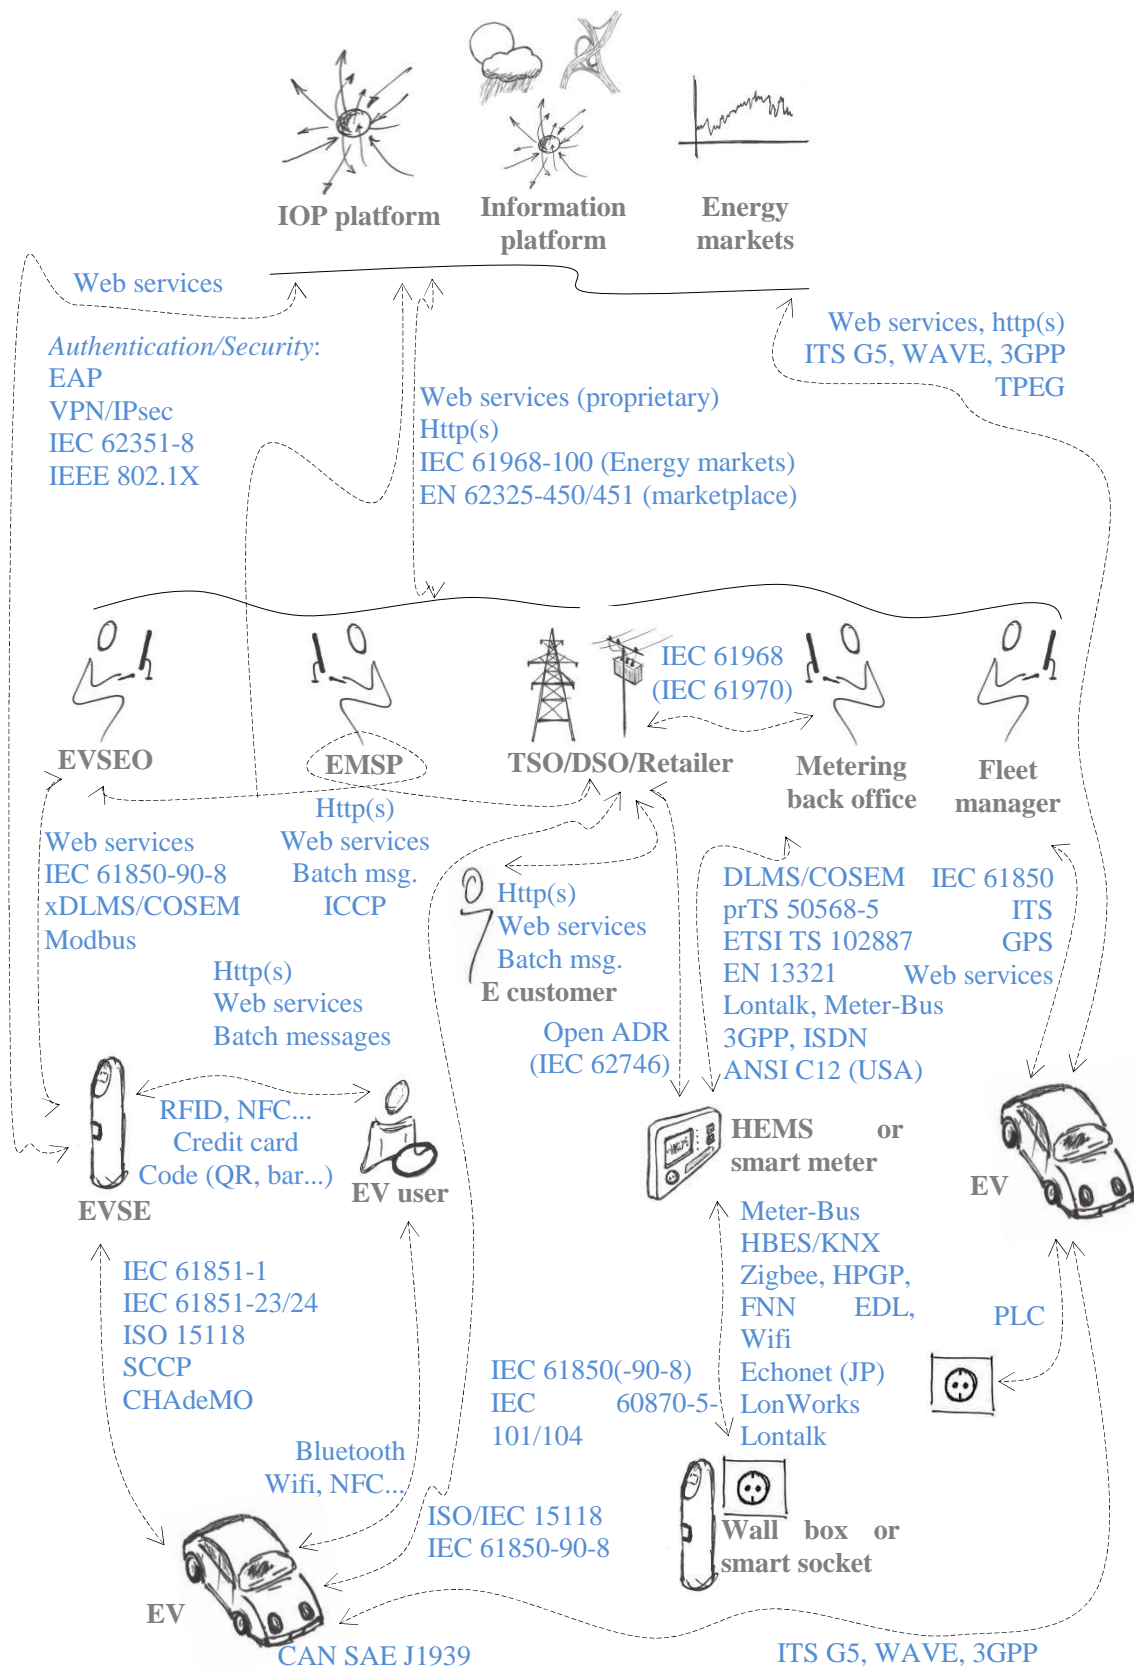 IOP platform
Information
platform
Energy
markets
Web services
Authentication/Security:
EAP
VPN/IPsec
IEC 62351-8
IEEE 802.1X
Web services (proprietary)
Http(s)
IEC 61968-100 (Energy markets)
EN 62325-450/451 (marketplace)
Web services, http(s)
ITS G5, WAVE, 3GPP
TPEG
IEC 61968
(IEC 61970)
EVSEO
EMSP
TSO/DSO/Retailer
Metering
back office
Fleet
manager
Web services
IEC 61850-90-8
xDLMS/COSEM
Modbus
Http(s)
Web services
Batch msg.
ICCP
Http(s)
Web services
Batch messages
Http(s)
Web services
Batch msg.
E customer
Open ADR
(IEC 62746)
DLMS/COSEM
prTS 50568-5
ETSI TS 102887
EN 13321
Lontalk, Meter-Bus
3GPP, ISDN
ANSI C12 (USA)
IEC 61850
ITS
GPS
Web services
RFID, NFC...
Credit card
Code (QR, bar...)
EVSE
EV user
HEMS or
smart meter
EV
IEC 61851-1
IEC 61851-23/24
ISO 15118
SCCP
CHAdeMO
Meter-Bus
HBES/KNX
Zigbee, HPGP,
FNN EDL,
Wifi
Echonet (JP)
LonWorks
Lontalk
PLC
IEC 61850(-90-8)
IEC 60870-5-
101/104
Bluetooth
Wifi, NFC...
ISO/IEC 15118
IEC 61850-90-8
Wall box or
smart socket
EV
CAN SAE J1939
ITS G5, WAVE, 3GPP